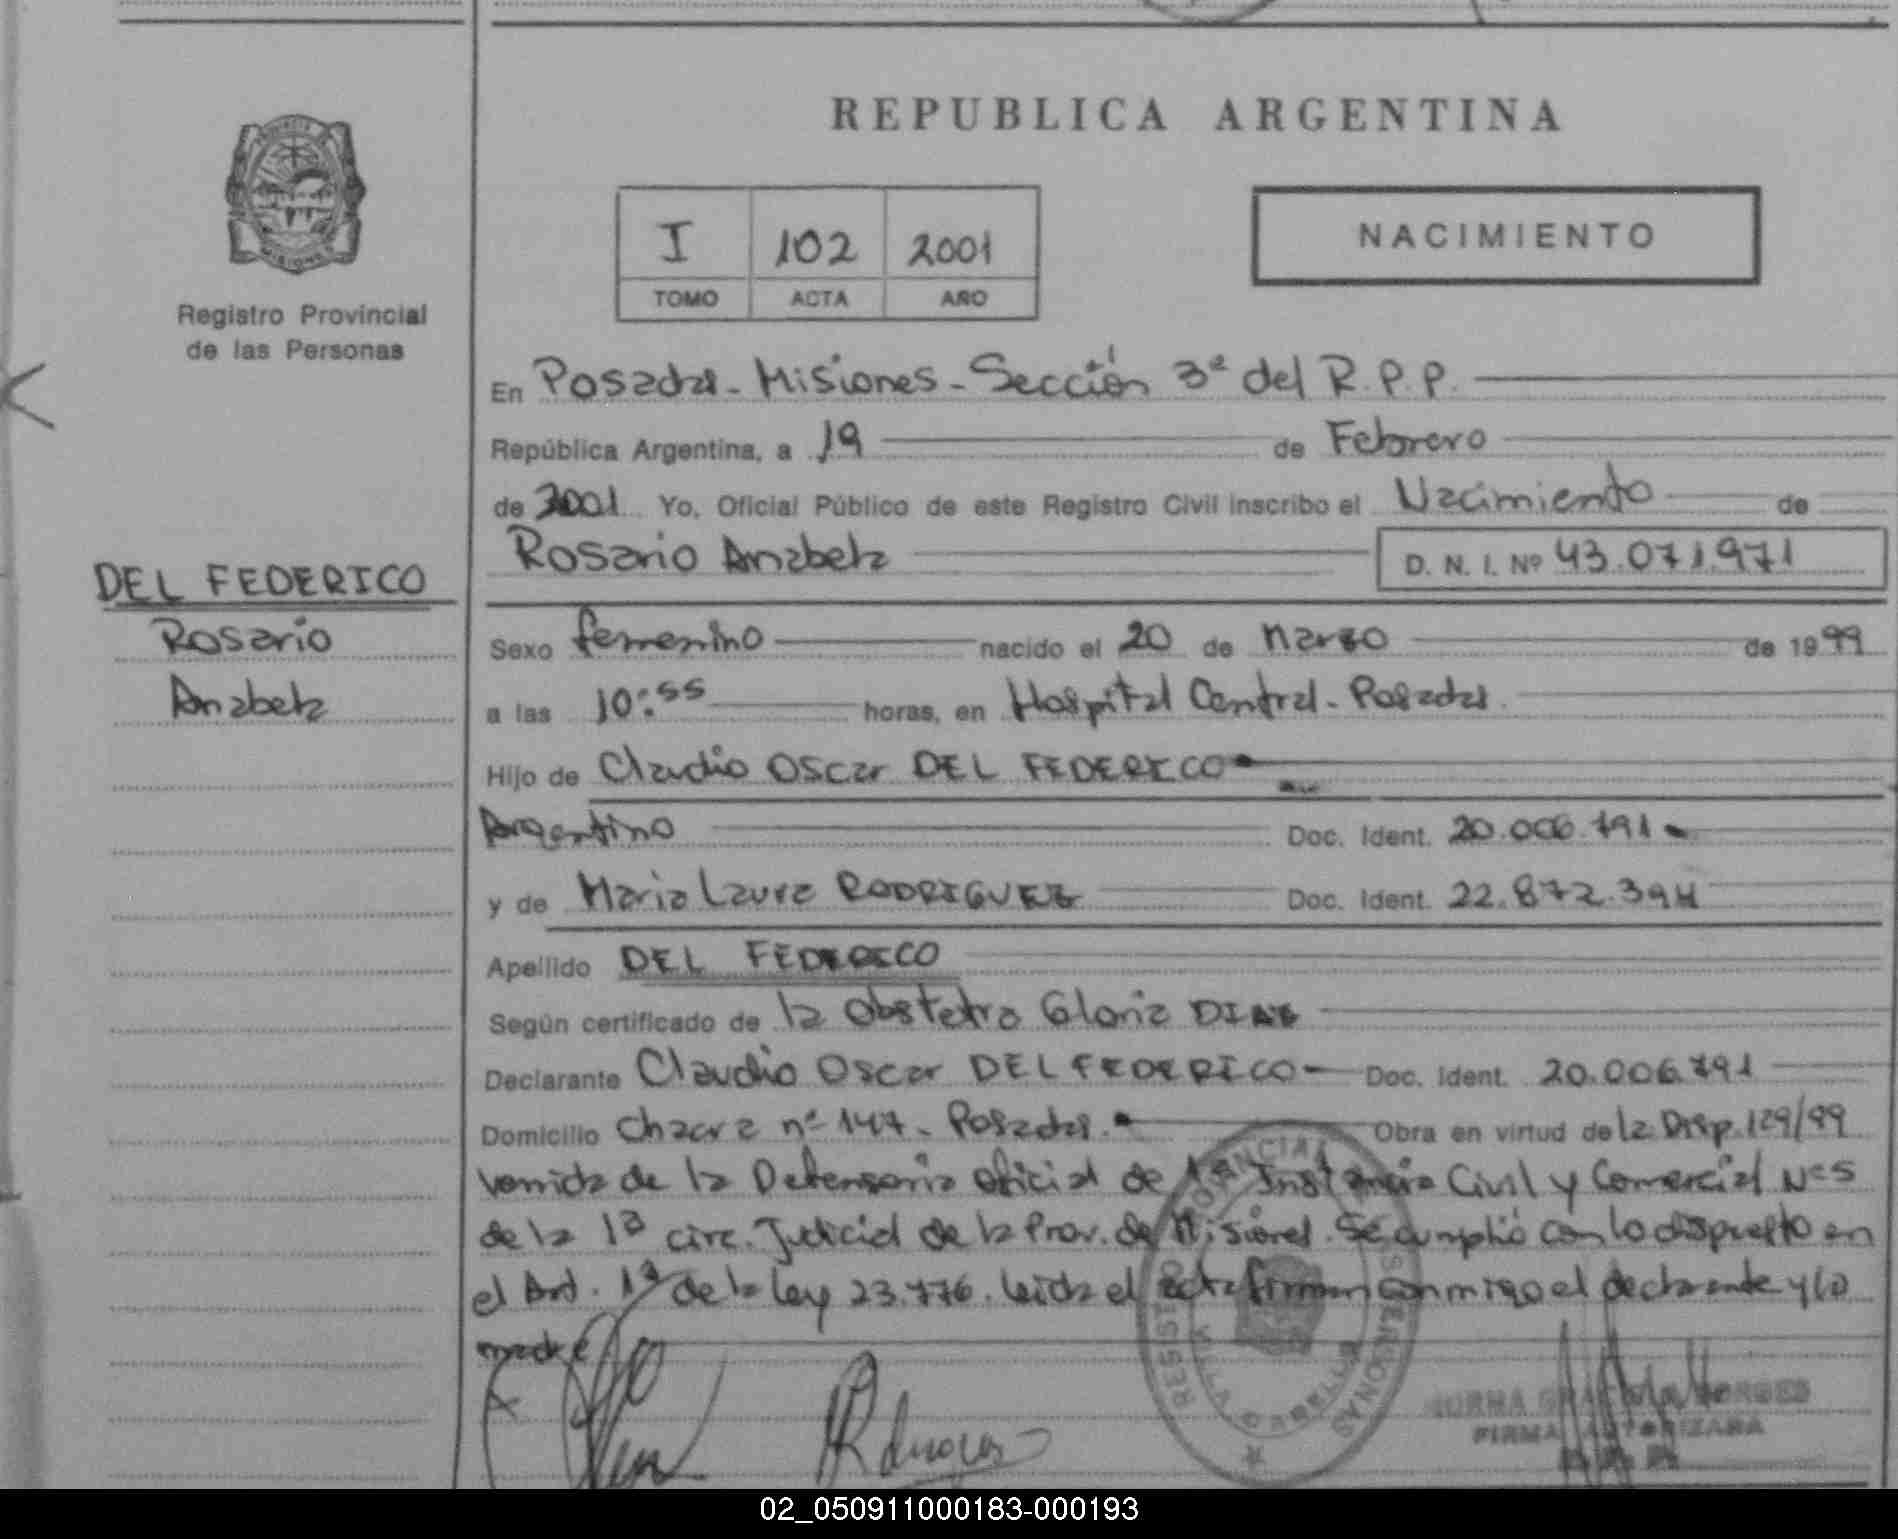 REPUBLICA ARGENTINA
I 102 2001
TOMO ACTA AÑO
NACIMIENTO
MISIONES
Registro Provincial
de las Personas
En Posadas - Misiones - Sección 3ª del R.P.P.
República Argentina, a 19 de Febrero
de 2001 Yo, Oficial Público de este Registro Civil inscribo el Nacimiento de
Rosario Anabela D. N. I. Nº 43.071.971
DEL FEDERICO
Rosario
Anabela
Sexo femenino nacido el 20 de Marzo de 1999
a las 10:55 horas, en Hospital Central - Posadas.
Hijo de Claudio Oscar DEL FEDERICO
Argentino Doc. Ident. 20.006.791
y de Maria Laura RODRIGUEZ Doc. Ident. 22.872.394
Apellido DEL FEDERICO
Según certificado de la Obstetra Gloria DIAZ
Declarante Claudio Oscar DEL FEDERICO Doc. Ident. 20.006.791
Domicilio Chacra nº 147 - Posadas. Obra en virtud de la Disp. 129/99
venida de la Defensoria Oficial de 1ª Instancia Civil y Comercial Nº 5
de la 1ª circ. Judicial de la Prov. de Misiones. Se cumplió con lo dispuesto en
el Art. 1º de la ley 23.776. leida el acta firman conmigo el declarante y la
madre
REGISTRO PROVINCIAL PERSONAS
NORMA GRACIELA BORGES
FIRMA AUTORIZADA
02_050911000183-000193